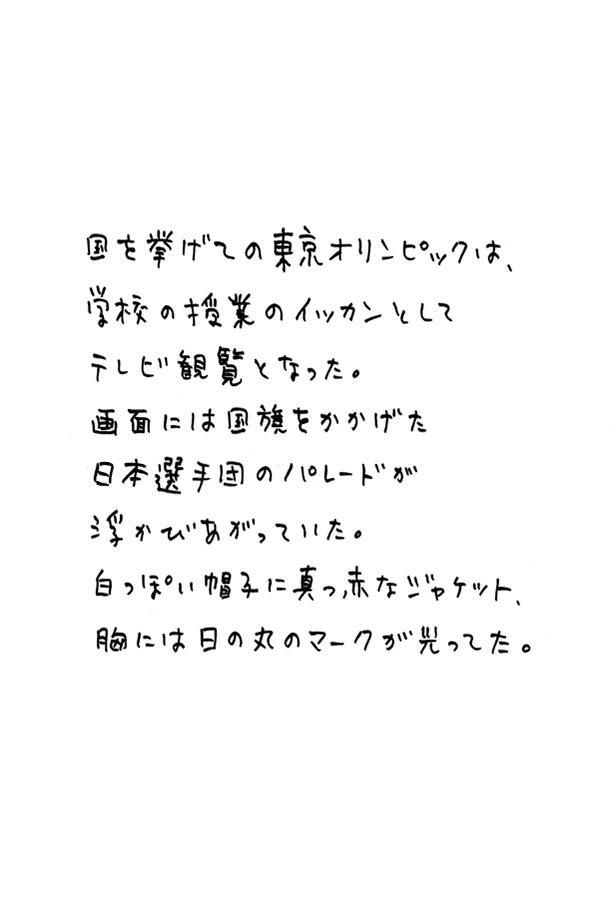 国を挙げての東京オリンピックは、
学校の授業のイッカンとして
テレビ観覧となった。
画面には国旗をかかげた
日本選手団のパレードが
浮かびあがっていた。
白っぽい帽子に真っ赤なジャケット、
胸には日の丸のマークが光ってた。